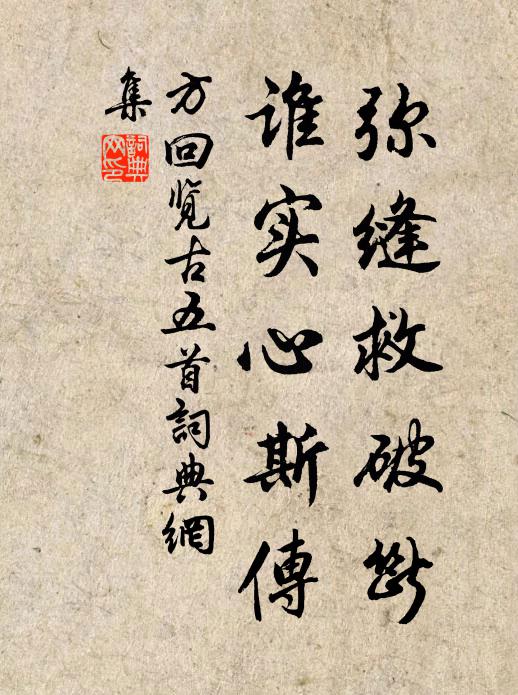 弥缝救破断
谁实心斯傳
方回览古五首詞典網
集
詞典
网印